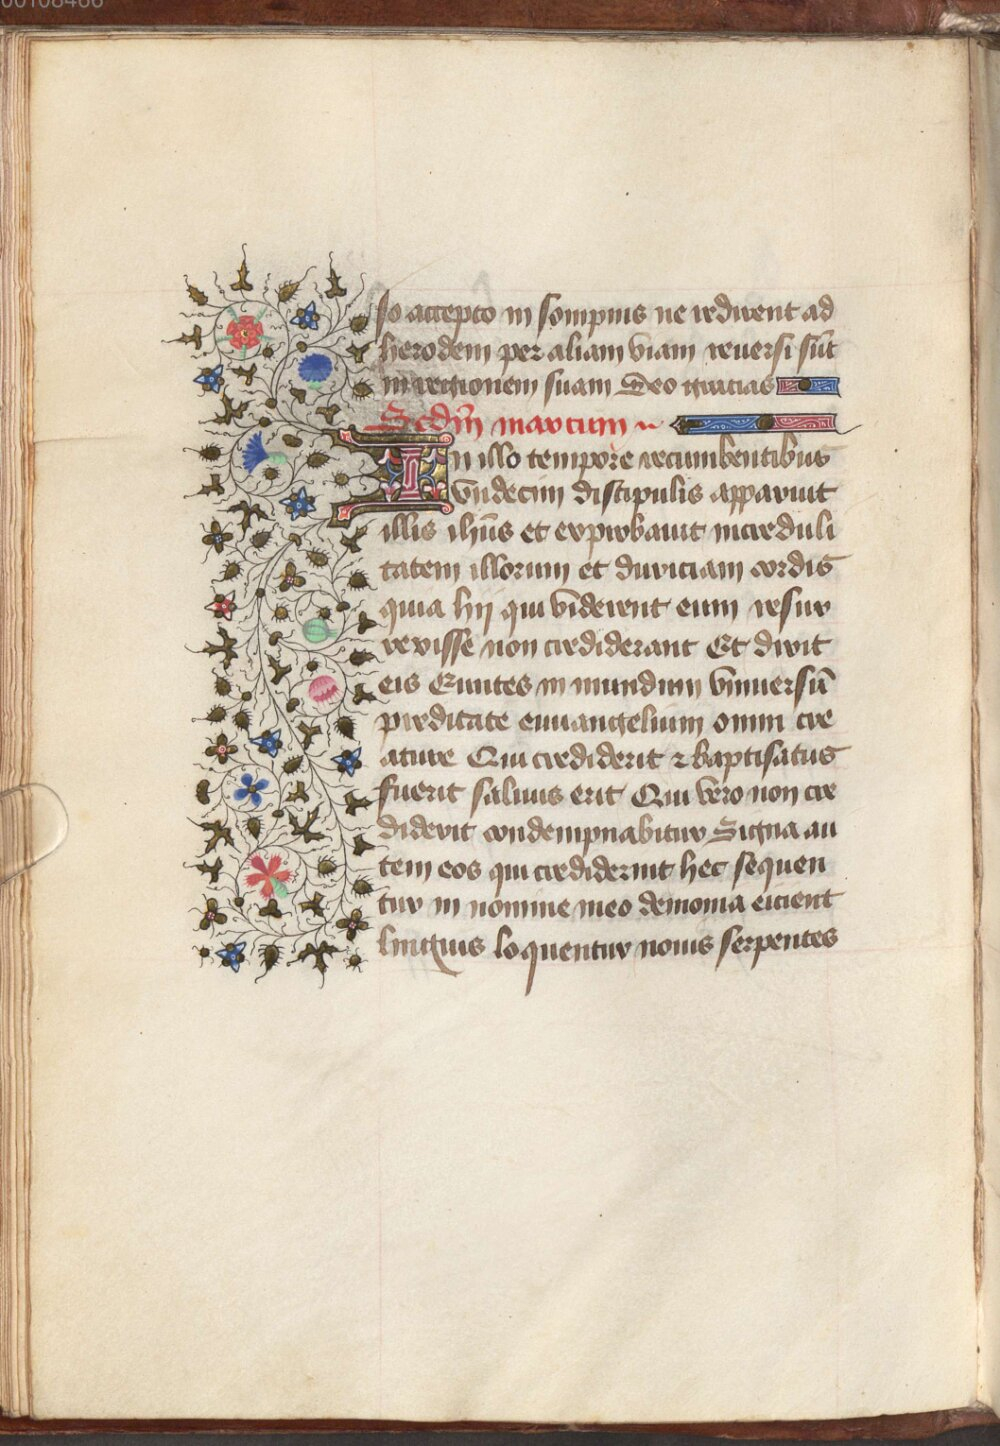 00108466
so accepto in sompnis ne redirent ad
herodem per aliam viam reuersi sūt
in regionem suam Deo gracias
Scdm̄ marcum
In illo tempore recumbentibus
vndecim discipulis apparuit
illis ihūs et exprobauit increduli
tatem illorum et duriciam cordis
quia hij qui viderent eum resur
rexisse non crediderant Et dixit
eis Euntes in mundum vniuersū
predicate euuangelium omni cre
ature Qui crediderit ⁊ baptisatus
fuerit saluus erit Qui vero non cre
diderit condempnabitur Signa au
tem eos qui crediderint hec sequen
tur in nomine meo demonia eicient
linguis loquentur nouis serpentes